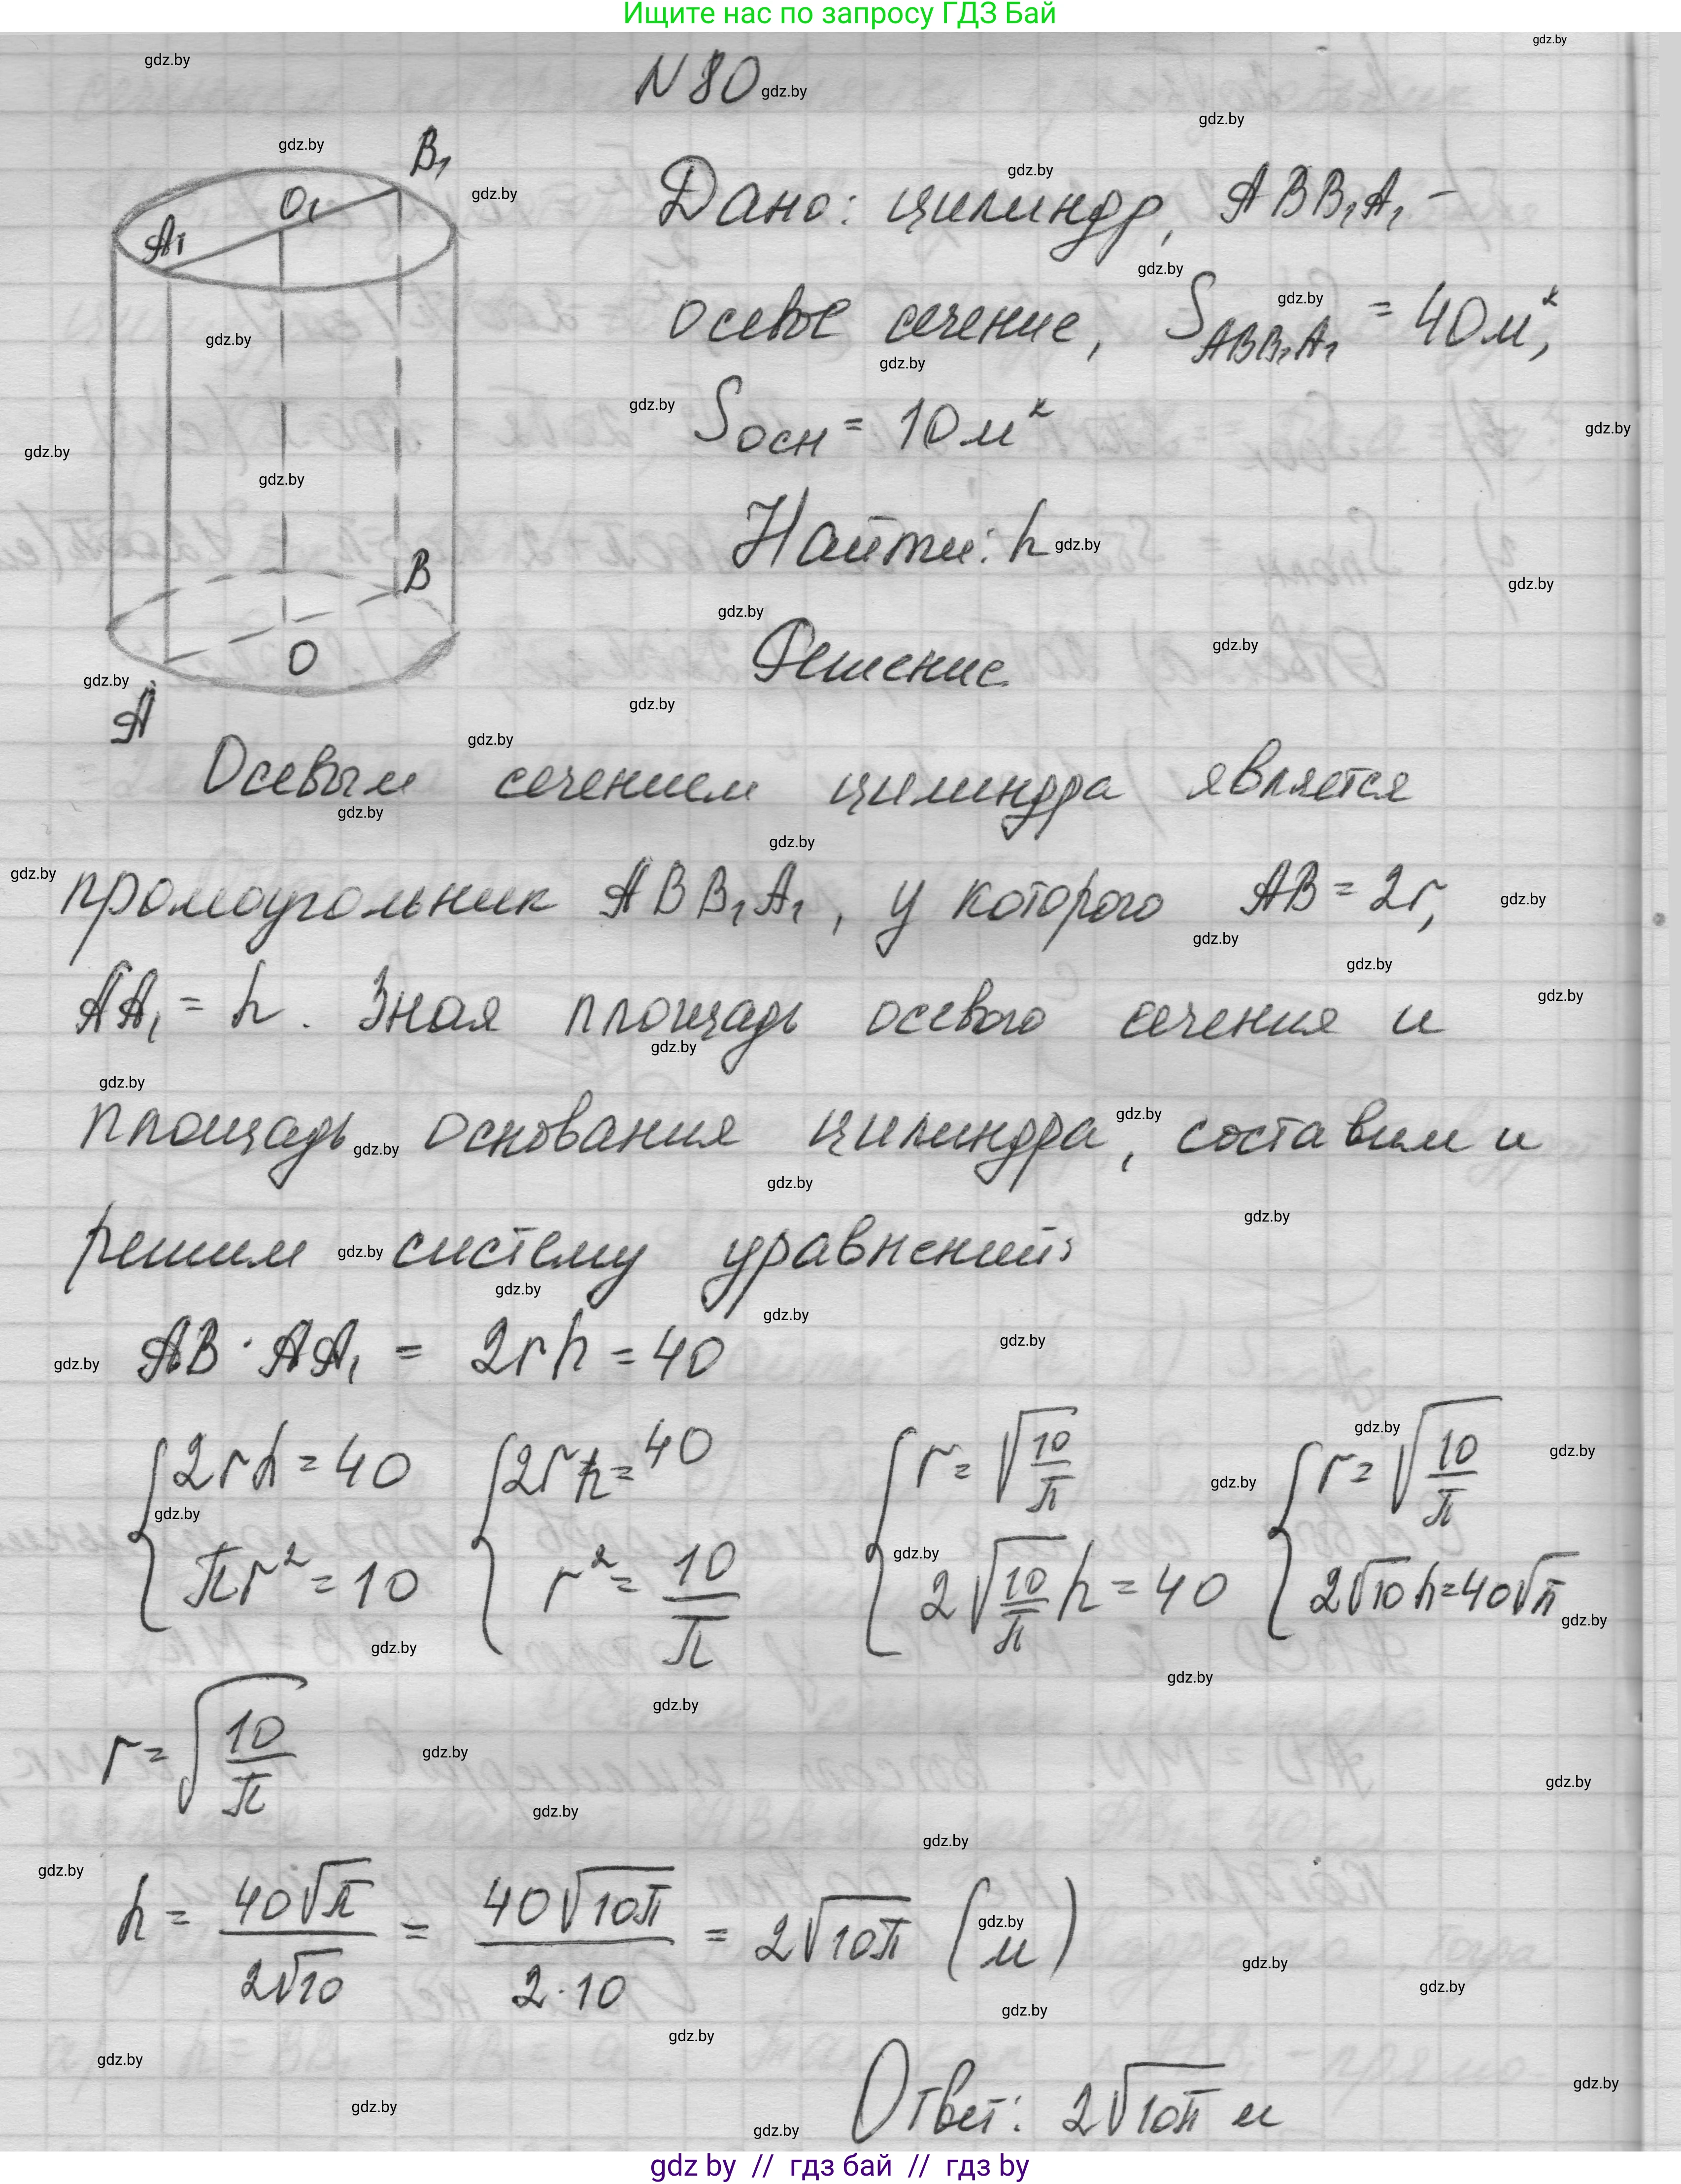 Ищите нас по запросу ГДЗ Бай
N 80
B₁
O₁
A₁
B
O
A
Дано: цилиндр, ABB₁A₁ –
осевое сечение, S_ABB₁A₁ = 40 м²,
Sосн = 10 м²
Найти: h
Решение
Осевым сечением цилиндра является
прямоугольник ABB₁A₁, у которого AB = 2r,
AA₁ = h. Зная площадь осевого сечения и
площадь основания цилиндра, составим и
решим систему уравнений:
AB · AA₁ = 2rh = 40
{2rh = 40 {2rh = 40 {r = √(10/π) {r = √(10/π)
{πr² = 10 {r² = 10/π {2√(10/π) h = 40 {2√10 h = 40√π
r = √(10/π)
h = 40√π / 2√10 = 40√10π / 2·10 = 2√10π (м)
Ответ: 2√10π м
gdz by // гдз бай // гдз by
gdz.by